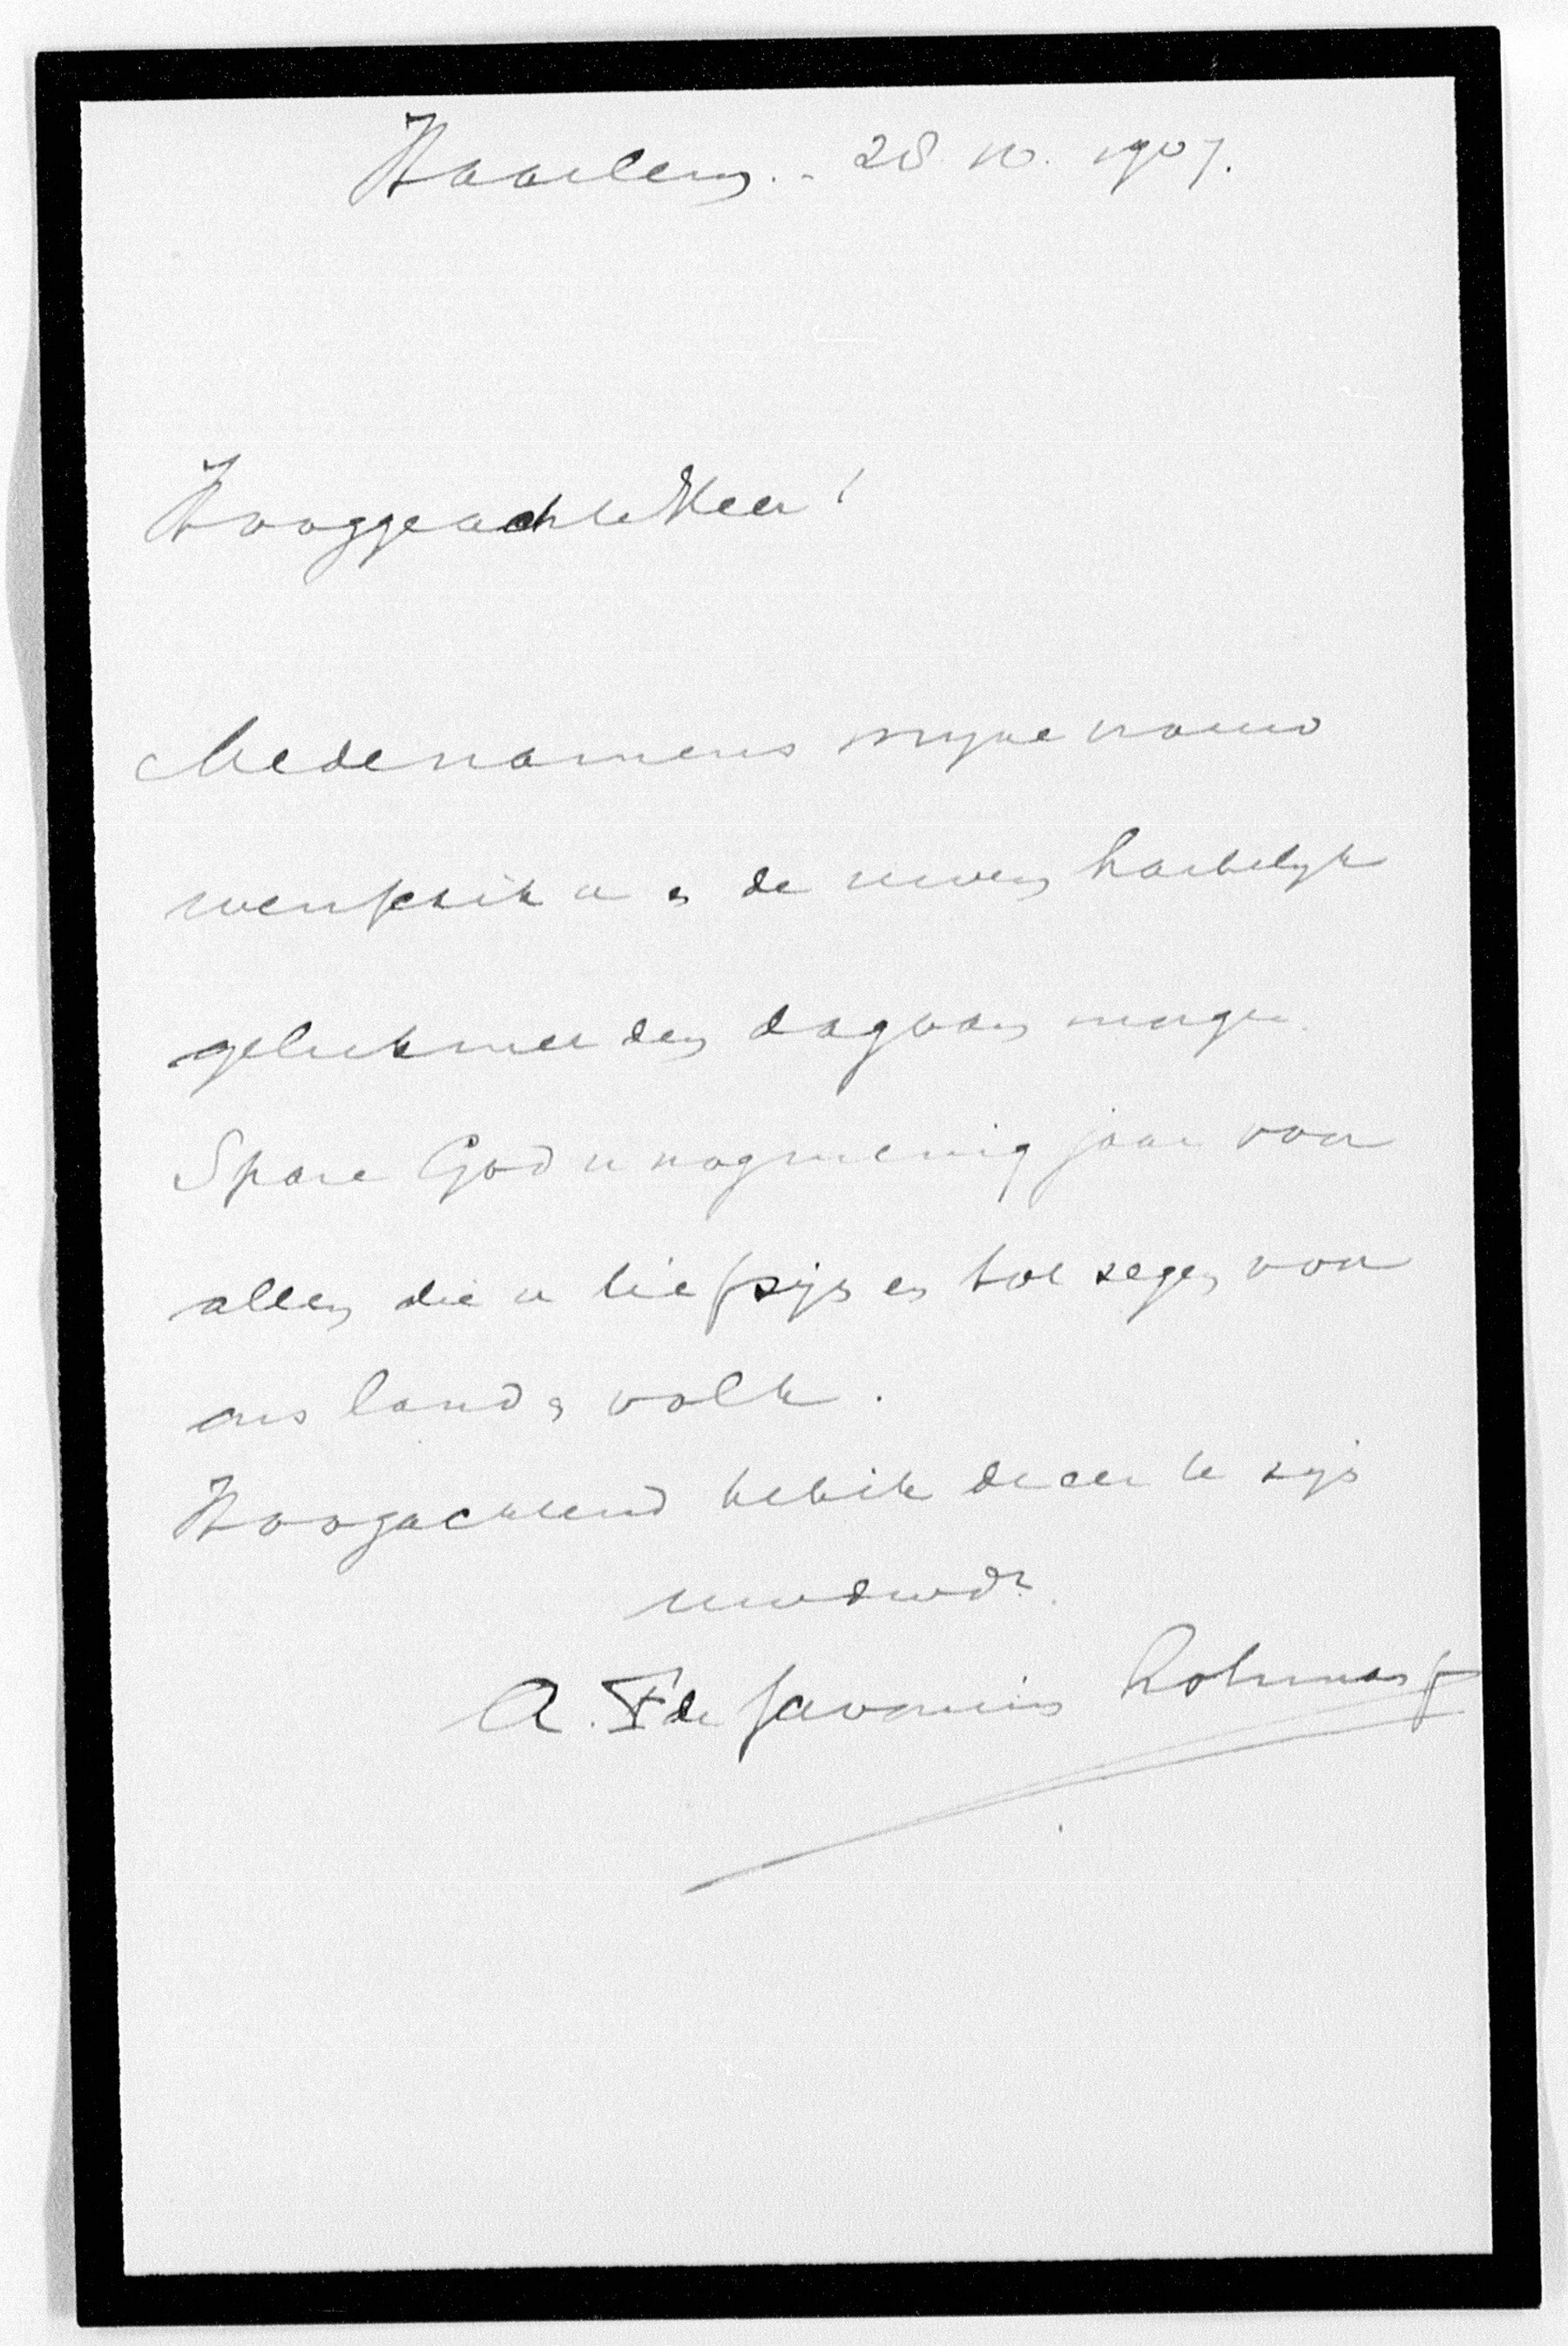 Haarlem. - 28. 10. 1907.
Hooggeachte Heer!
Mede namens mijne vrouw
wensch ik u & de uwen hartelijk
geluk met den dag van morgen.
Spare God u nog menig jaar voor
allen die u lief zijn en tot zegen voor
ons land & volk.
Hoogachtend heb ik de eer te zijn
uwdwdr.
A. F de Savornin Lohman